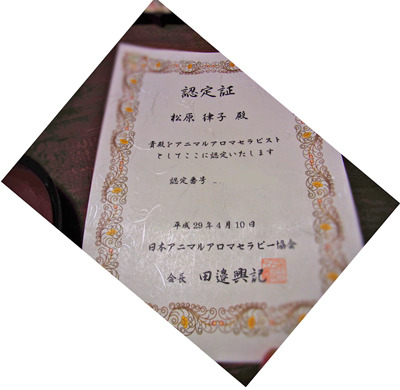 認定証
松原 律子 殿
貴殿をアニマルアロマセラピスト
としてここに認定いたします
認定番号
平成29年4月10日
日本アニマルアロマセラピー協会
会長 田邉興記